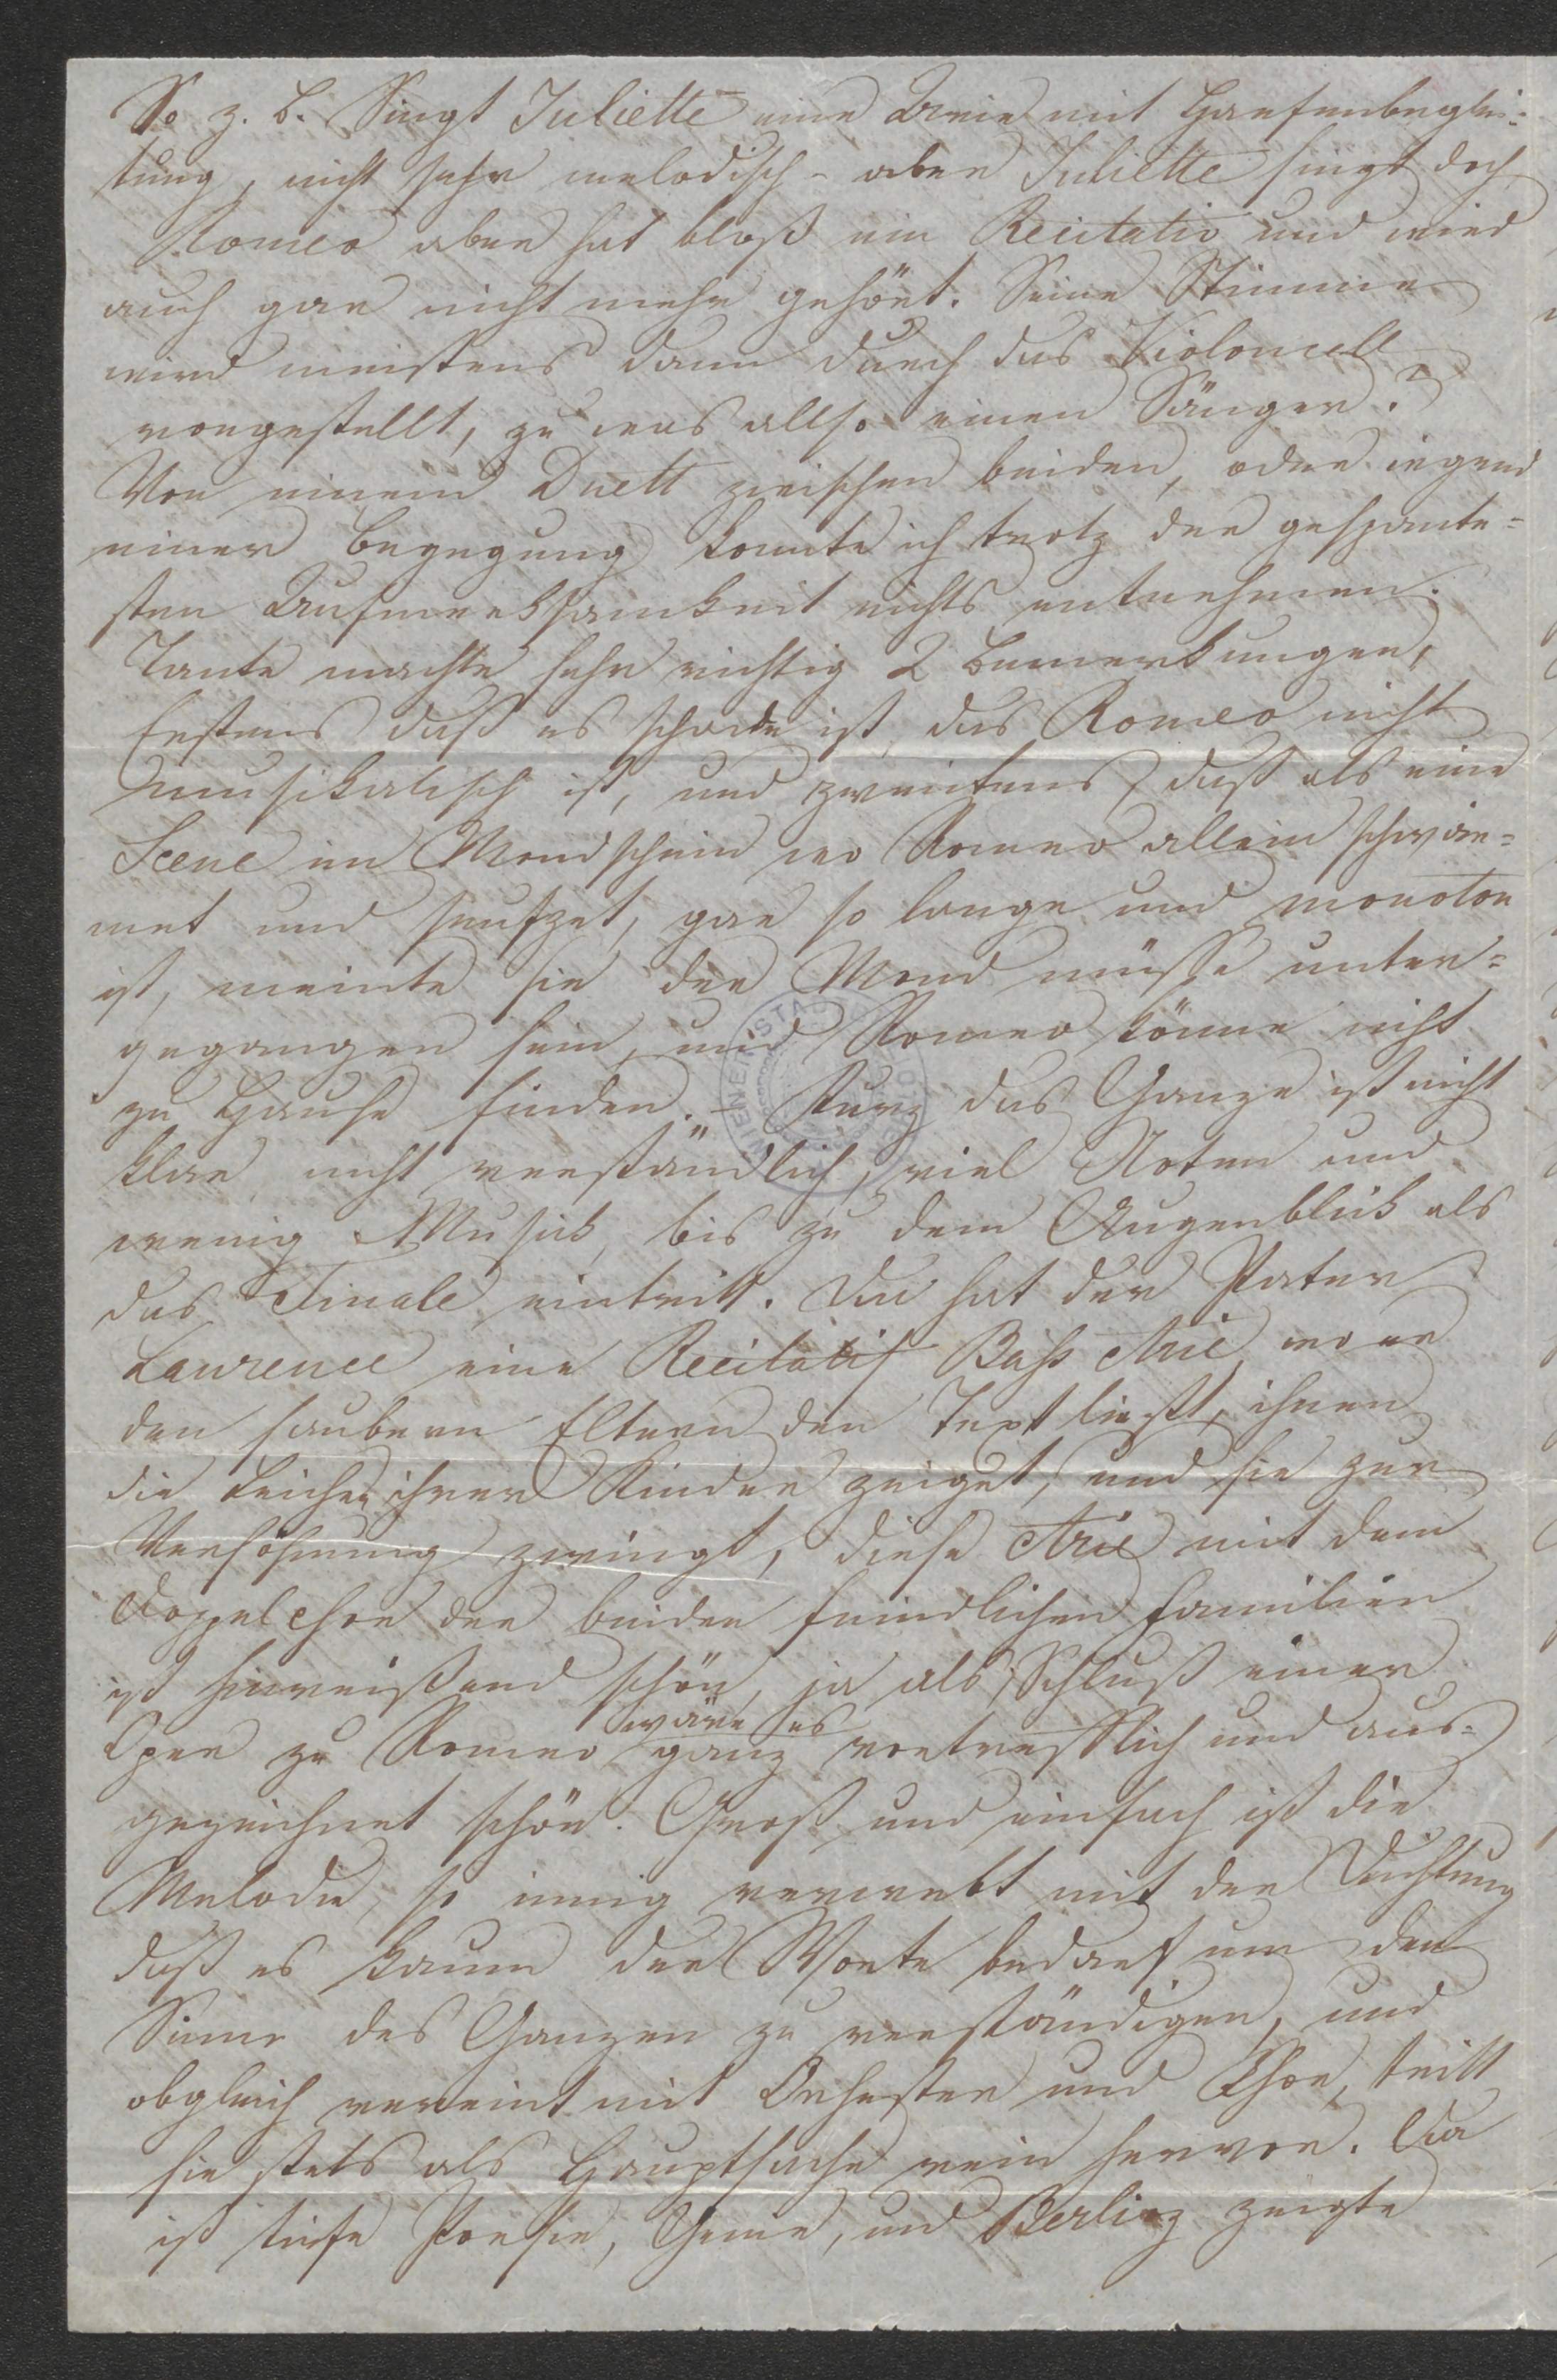 So z. B. Singt Juliette eine Arie mit Harfenbeglei-
tung, nicht sehr melodisch - aber Juliette singt doch
Romeo aber hat bloß ein Recitativ und wird
auch gar nicht mehr gehört. Seine Stimme
wird meistens dann durch das Violoncell
vorgestellt, zu was allso einen Sänger?
Von einem Duett zwischen beiden, oder irgend
einer Begegung konnte ich trotz der gespante=
sten Aufmerksamkeit nichts entnehmen.
Tante machte sehr richtig 2 Bemerkungen,
Erstens daß es schade ist, das Romeo nicht
musikalisch ist, und zweitens, daß als eine
Scene im Mondschein wo Romeo allein schwär=
met und seufzet, gar so lange und monoton
ist, meinte sie der Mond müsse unter=
gegangen sein, und Romeo könne nicht
zu Hause finden. - Kurz das Ganze ist nicht
klar, nicht verständlich, viel Noten und
wenig Musick, bis zu dem Augenblick als
das Finale eintritt. Da hat der Pater
Laurence eine Recitatif Bass Arie, wo er
den saubern Eltern den Text ließt, ihnen
die Leichen ihrer Kinder zeiget, und sie zur
Versöhnung zwingt, diese Arie mit dem
Doppelchor der beiden feindlichen Familien
ist hinreißend schön, ja als Schluß einer
wäre es
Oper zu Romeo ganz vortrefflich und aus=
gezeichnet schön. Groß und einfach ist die
Melodie, so innig verwebt mit der Dichtung
daß es kaum der Worte bedarf um den
Sinne des Ganzen zu verständigen, und
obgleich vereint mit Orchester und Chor, tritt
sie stets als Hauptsache rein hervor. Da
ist tiefe Poesie, Genie, und Berlioz zeigte
WIENER STADT